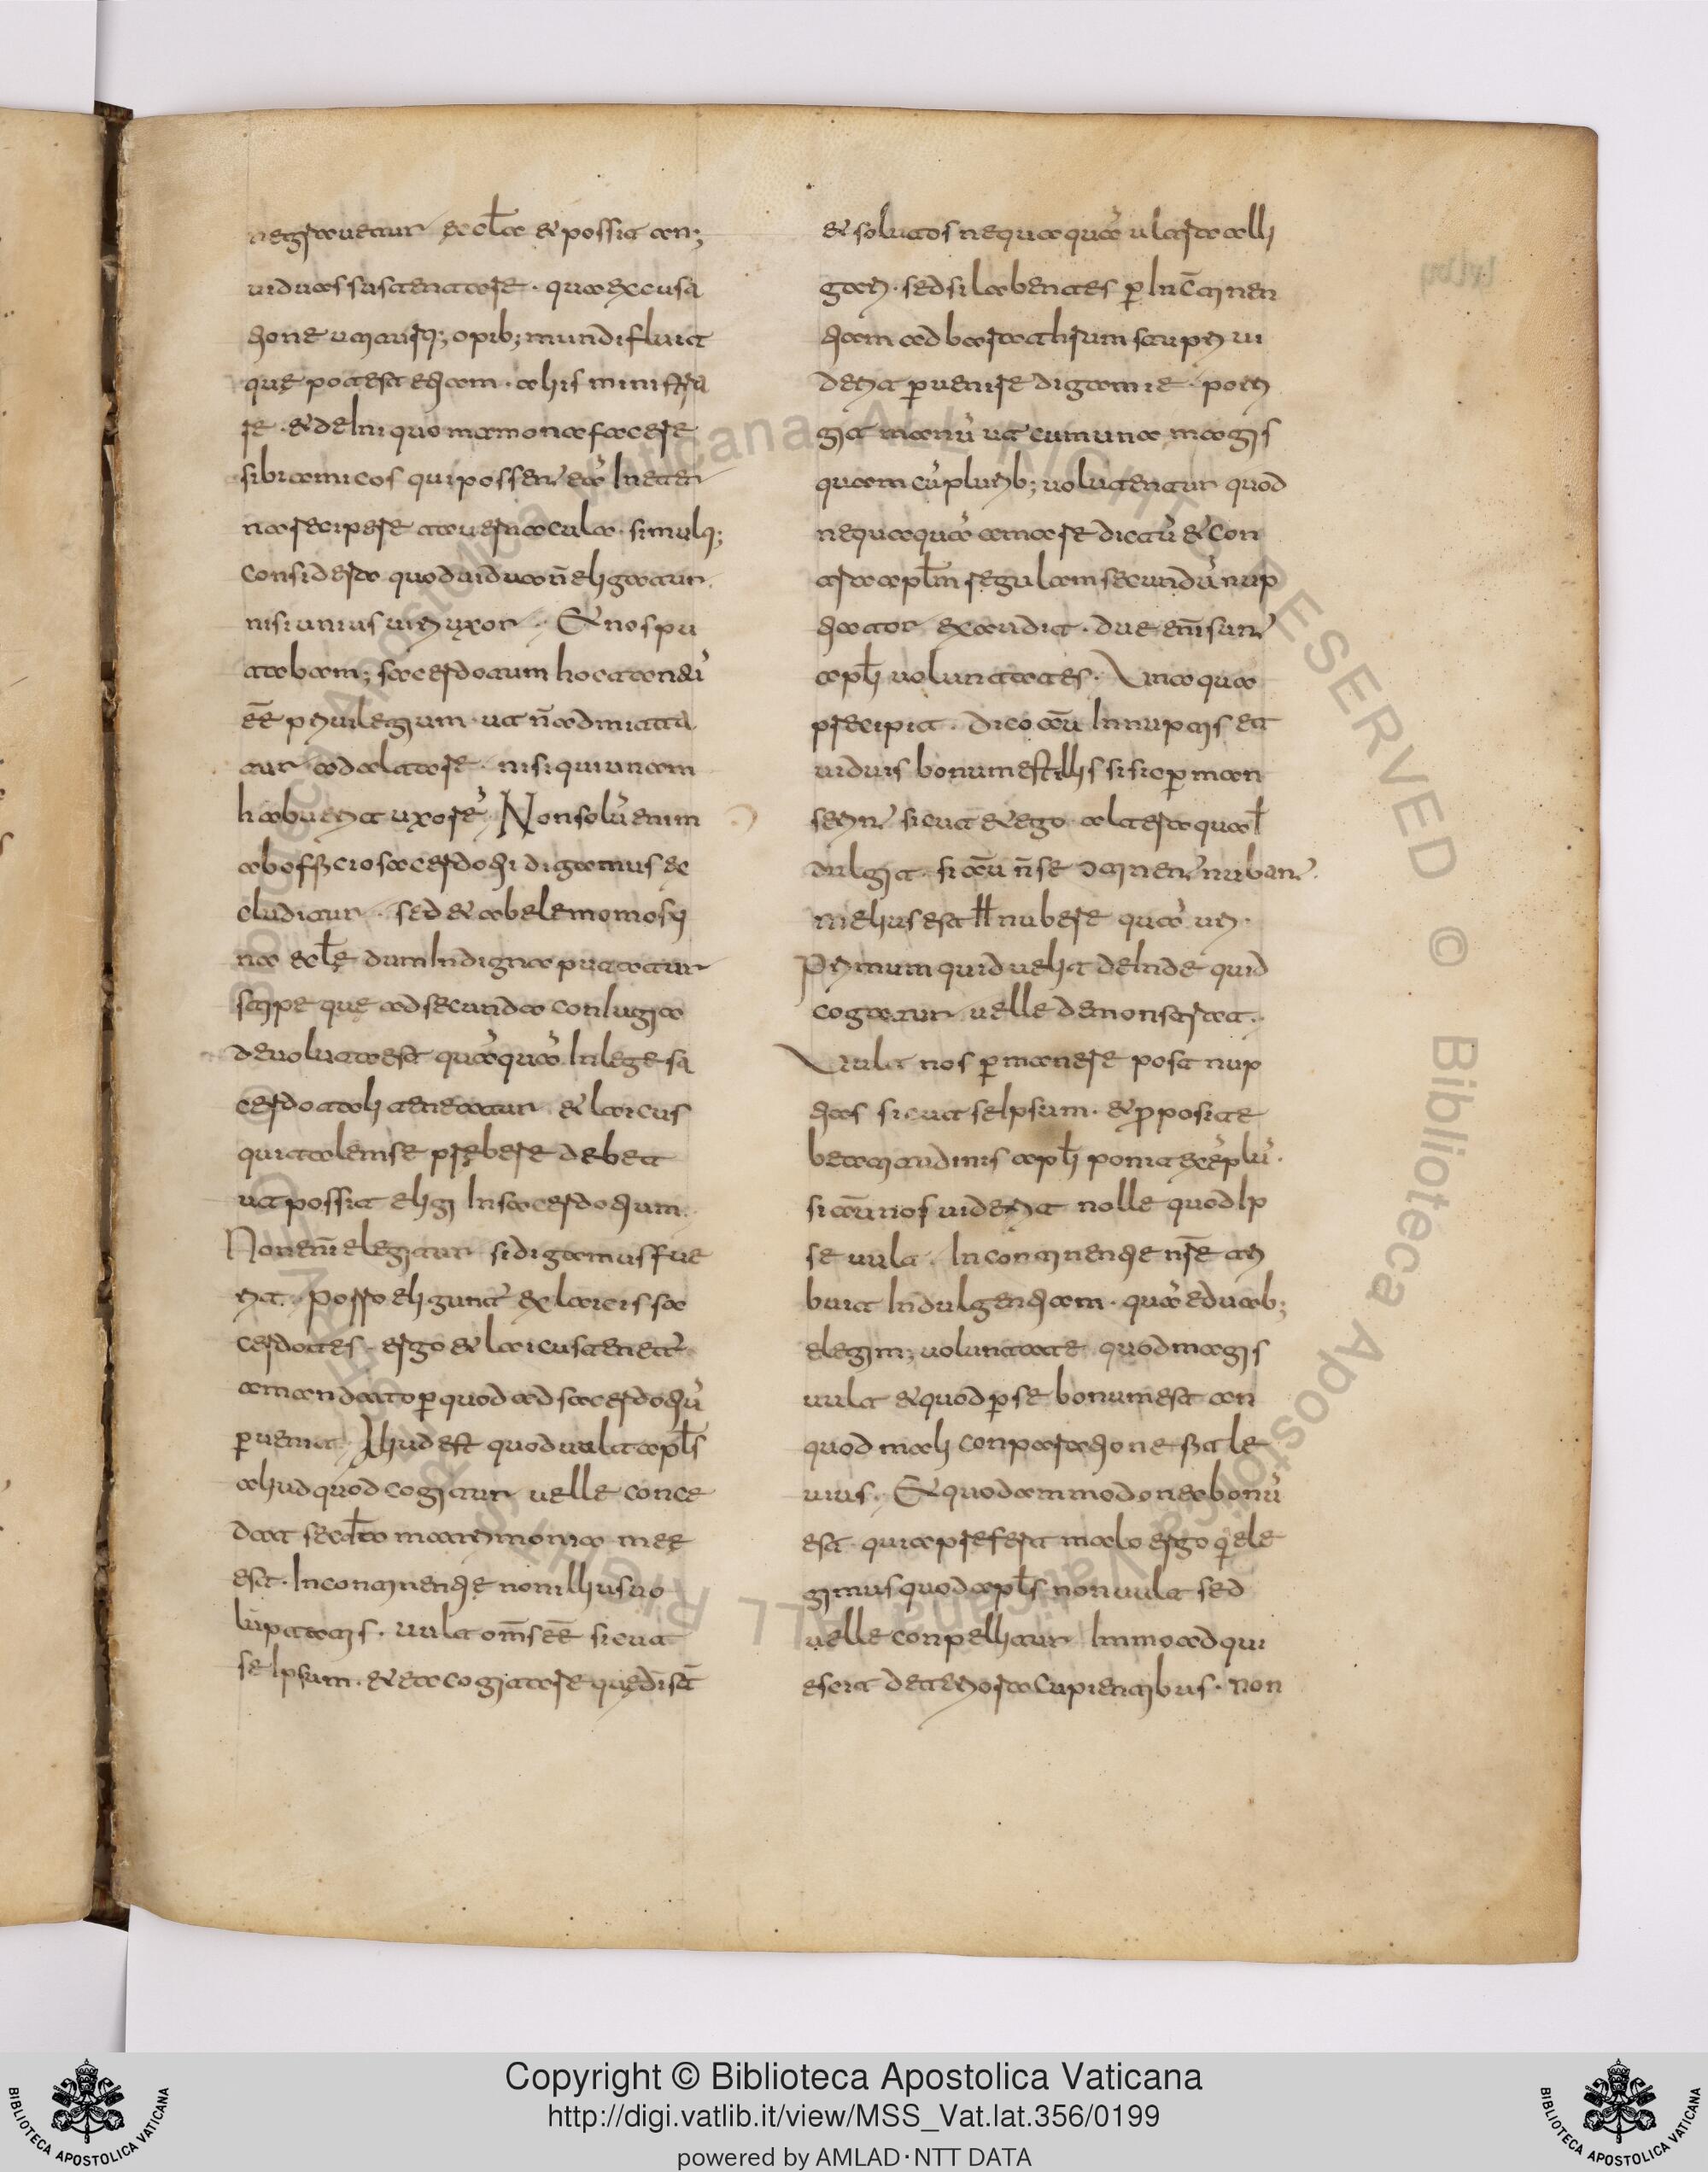 negrauetur eccl̄a et possit an;
uiduas sustentare. qua excusa
tione utriusq; opib; mundi fluit
quę potest etiam. aliis ministra
re. et de iniquo mamona facere
sibi amicos qui possent ea̅ in eter
na recipere tabernacula. simulq;
considera quod uidua n̄ eligatur
nisi unius uiri uxor. Et nos pu
tabam; sacerdotum hoc tantu̅
ēē priuilegium. ut n̄ admitta
tur ad altare. nisi qui unam
habuerit uxore̅. Non solu̅ enim
ab officio sacerdotii digamus ec
cluditur. sed et ab elemomosi
na eccl̄ę dum indigna putatur
stipe que ad secunda coniugia
deuoluta est qua̅qua̅ in lege sa
cerdotali teneatur et laicus
qui talem se prębere debet
ut possit eligi in sacerdotium.
Non eni̅ elegitur si digamus fue
rit. Porro eligunt̅ ex laicis sa
cerdotes. ergo et laicus tenet̅
a mandato p̱ quod ad sacerdotiu̅
p̱uenit. Aliud est quod uult apl̄s
aliud quod cogitur uelle conce
dat secd̄a matrimonia meę
est. Incontinentię non illius uo
luptatis. uult om̄s ēē sicut
se ipsum. et ea cogitare quę dī st̄
et solutos nequaqua̅ ultra alli
gari. sed si labentes p̱ inc̄tinen
tiam ad baratrhum stupri ui
derit p̱uenire digamie. pori
git manu̅ ut cum una magis
quam cu̅ plurib; uolutentur quod
nequaqua̅ amare dictu̅ et con
tra apl̄m regulam secundu̅ nup
tiator exaudit. due eni̅ sunt
apl̄i uoluntates. Una qua
precipit. dico au̅ innuptis et
uiduis bonum est illis si sic p̱man
serint sicut et ego. altera qua i̅
dulgit. si au̅ n̄ se ɔtinent nubant.
melius est nubere qua̅ uri.
Primum quid uelit deinde quid
cogatur uelle demonstrat.
Uult nos p̱manere post nup
tias sicut se ipsum. et proposite
beatitudinis apl̄i ponit exe̅plu̅.
si au̅ nos uiderit nolle quod ip
se uult. Incontinentię nr̄ę tri
buit indulgentiam. qua̅ e duab;
elegim; uoluntate quod magis
uult et quod p̱ se bonum est an
quod mali conparatione fit le
uius. Et quodammodo nec bonu̅
est. quia prefert malo ergo q̱ ele
gimus quod apl̄s non uult sed
uelle conpellitur. Immo ad qui
escit deteriora cupientibus. non
Copyright © Biblioteca Apostolica Vaticana
http://digi.vatlib.it/view/MSS_Vat.lat.356/0199
powered by AMLAD·NTT DATA